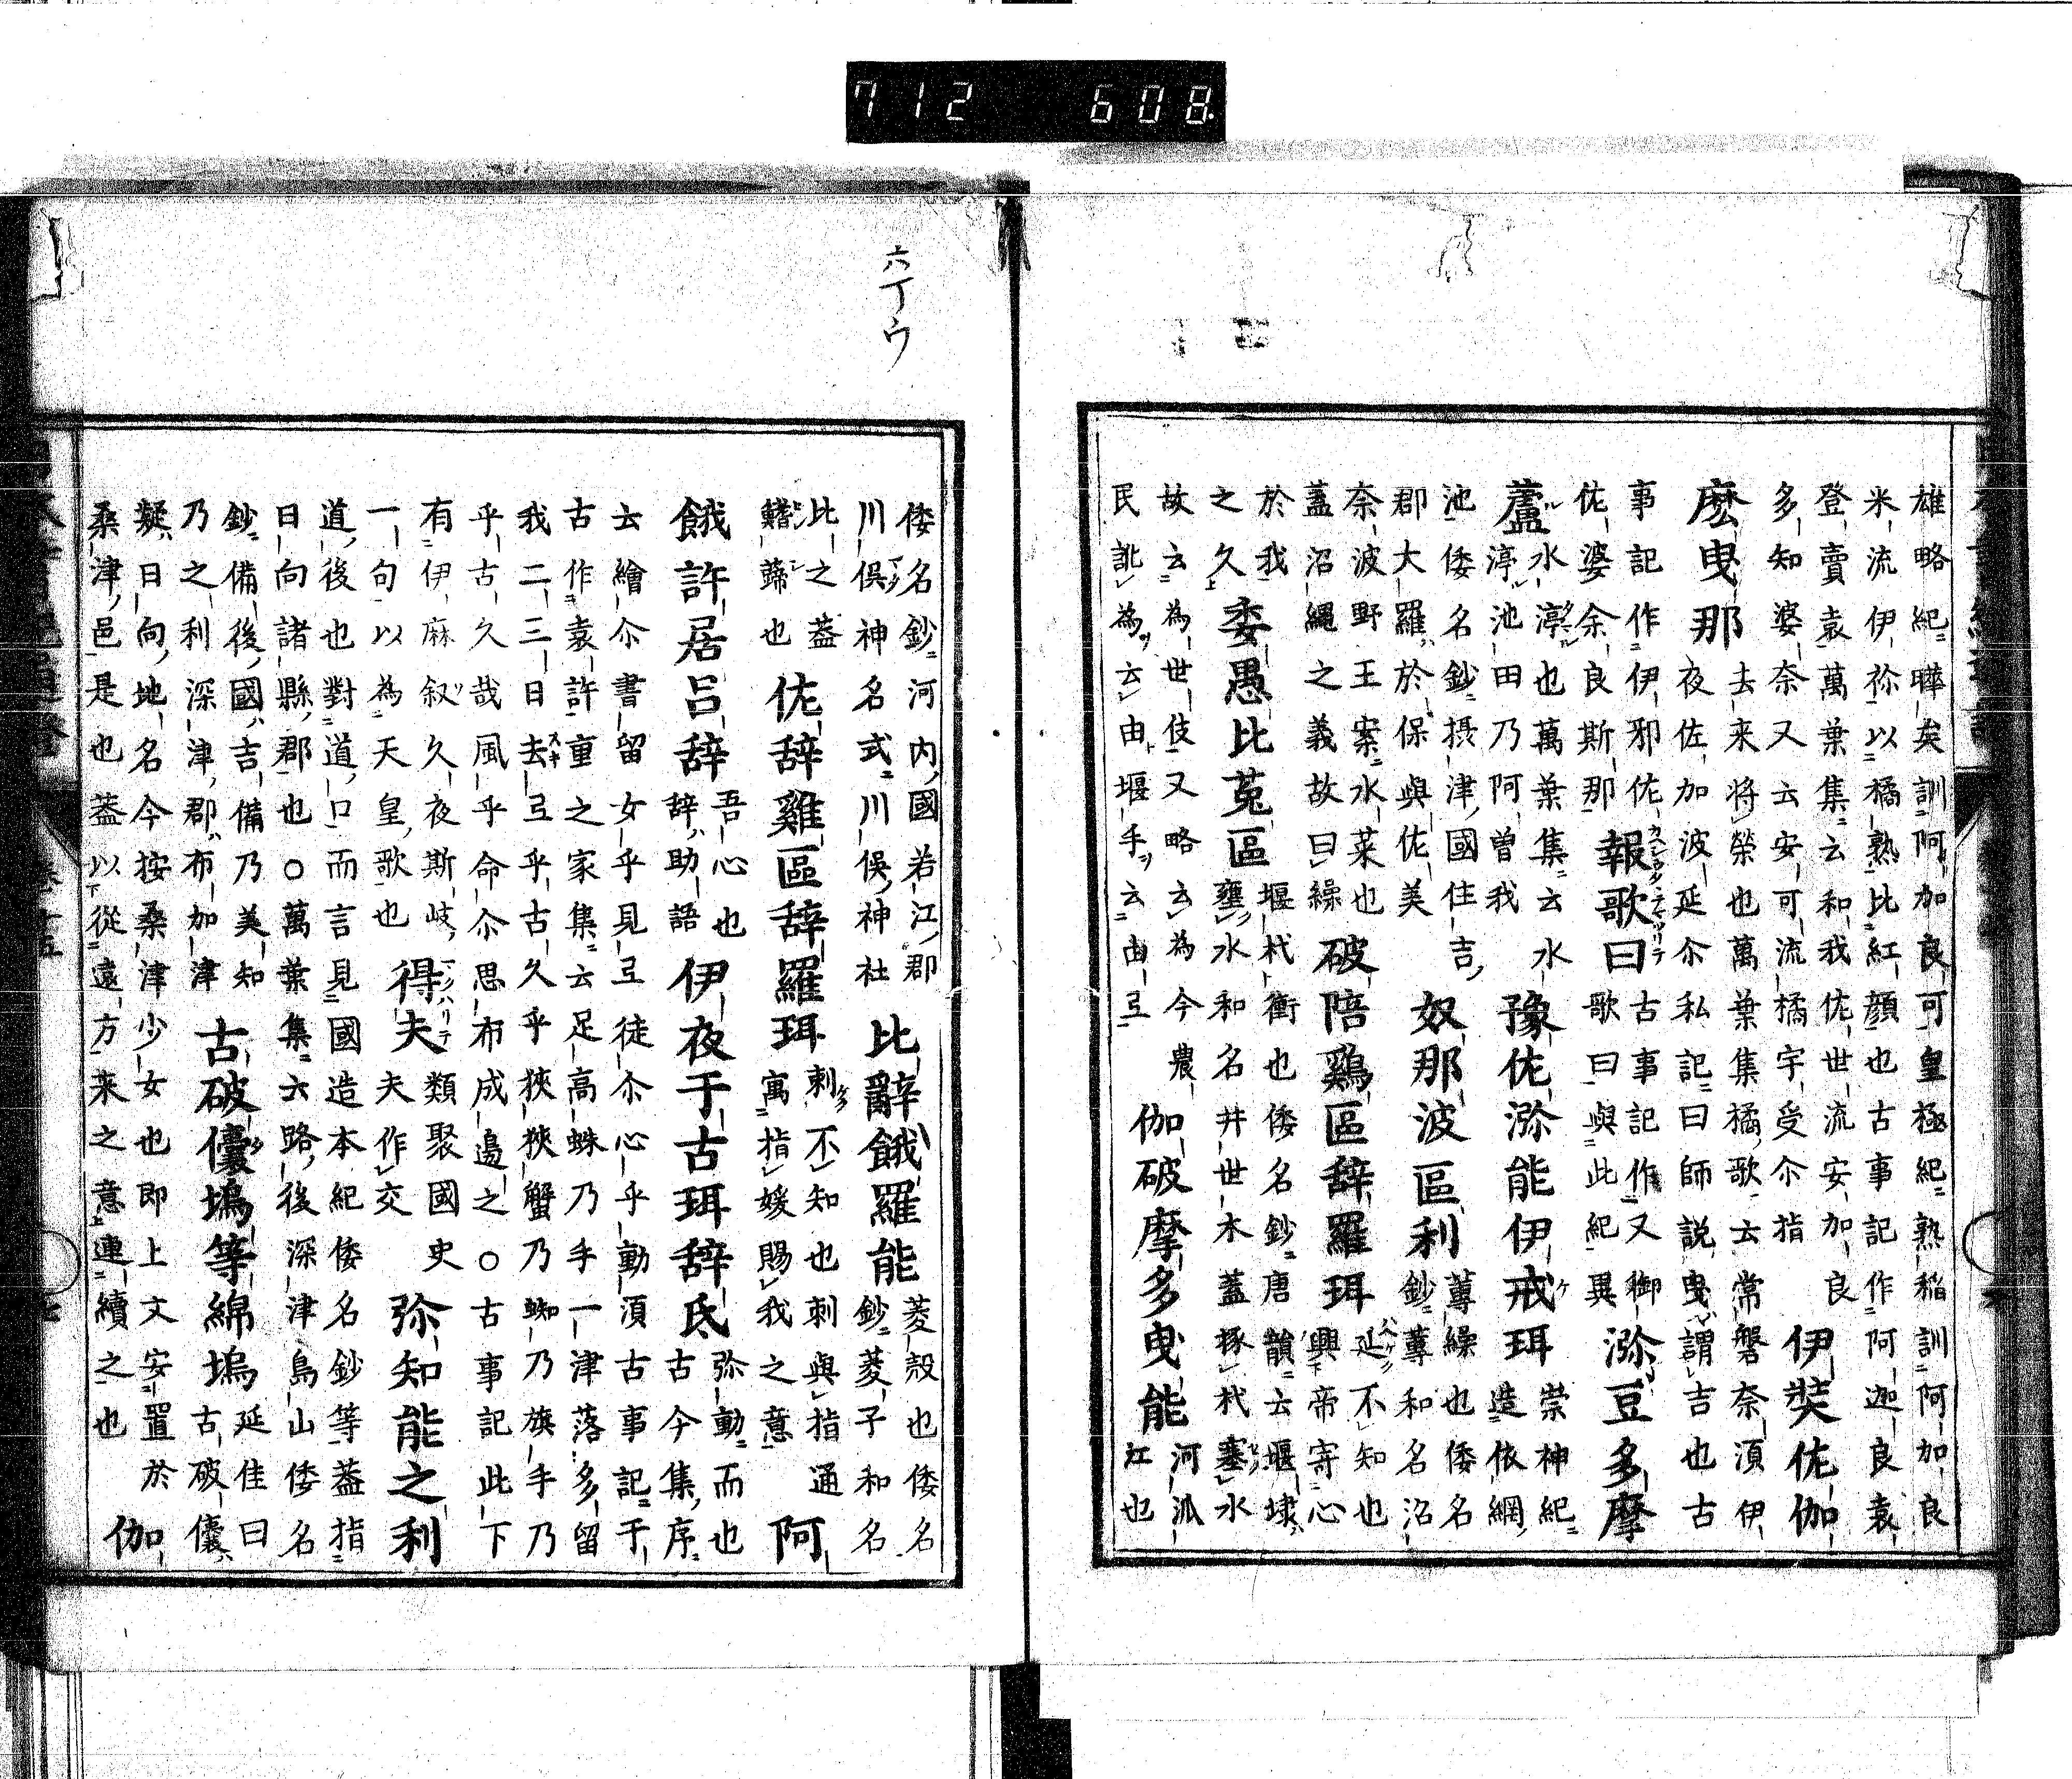 712 608
雄略紀曄矣訓阿加良可皇極紀熟稲訓阿加良
米流伊祢以橘熟比紅顔也古事記作阿迦良袁
登賣袁萬葉集云和我佐世流安加良
多知婆奈又云安可流橘宇受尒指 伊奘佐伽
麼曳那
去来将榮也萬葉集橘歌云常磐奈湏伊
夜佐加波延尒私記曰師説曳謂吉也古
事記作伊邪佐
佐婆余良斯那 報歌曰
古事記作又御
歌曰與此紀異 瀰豆多摩
蘆
水渟也萬葉集云水
渟池田乃阿曽我 豫佐瀰能伊戒珥
崇神紀
造依網
池倭名鈔摂津國住吉
郡大羅於保與佐美 奴那波區利
蓴繰也倭名
鈔蓴和名沼
奈波野王案水菜也
蓋沼縄之義故曰繰 破陪鶏區辞羅珥
延不知也
興帝寄心
於我
之久 委愚比菟區
堰杙衝也倭名鈔唐韻云堰埭
壅水和名井世木蓋捄杙塞水
故云為世伎又略云為今農
民訛為云由堰手云由弖 伽破摩多曳能
河泒
江也
六丁ウ
倭名鈔河内國若江郡
川俣神名式川俣神社 比辭餓羅能
菱殻也倭名
鈔菱子和名
比之蓋
鱃蹄也 佐辞雞區辞羅珥
刺不知也刺與指通
寓指媛賜我之意 阿
餓許居呂辞
吾心也
辞助語 伊夜于古珥辞氐
弥動而也
古今集序
云繪尒書留女乎見弖徒尒心乎動湏古事記于
古作袁許重之家集云足高蛛乃手一津落多留
我二三日去弖乎古久乎狹狹蟹乃蜘乃旗手乃
乎古久哉風乎命尒思布成邉之○古事記此下
有伊麻叙久夜斯岐
一句以為天皇歌也 得夫
類聚國史
夫作交 弥知能之利
道後也對道口而言見國造本紀倭名鈔等蓋指
日向諸縣郡也○萬葉集六路後深津島山倭名
鈔備後國吉備乃美知
乃之利深津郡布加津 古破儴塢等綿塢
延佳曰
古破儴
疑日向地名今按桑津少女也即上文安置於
桑津邑是也蓋以從遠方来之意連續之也 伽